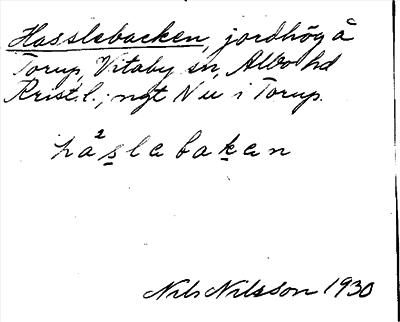 Hasslebacken, jordhög å
Torup, Vitaby sn, Albo hd
Krist.l.; ngt N u i Torup.
ha²slebaken
Nils Nilsson 1930